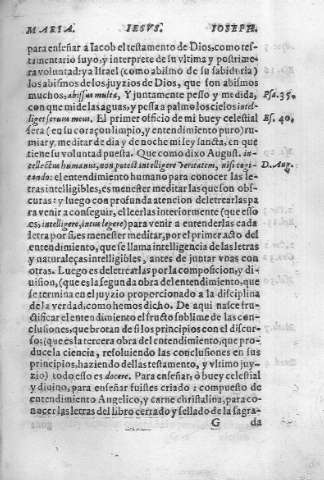 MARIA. IESVS. IOSEPH.
para enseñar a Iacob el testamento de Dios, como tes-
tamentario suyo: y interprete de su vltima y postrime-
ra voluntad: y a Israel (como abismo de su sabiduria)
los abismos de los juyzios de Dios, que son abismos
muchos, abissus multa, Y juntamente pesso y medida, Psa. 35.
con que mide las aguas, y pessa a palmo los cielos intel-
liget serum mem. El primer officio de mi buey celestial Es. 40.
sera (en su coraçon limpio, y entendimiento puro) ru-
miar y, meditar de dia y de noche mi ley sancta, en que
tiene su voluntad puesta. Que como dixo August. in-
tellectus humanus, non potest intelligere veritatem, nisi cogi- D. Aug.
tando: el entendimiento humano para conocer las le-
tras intelligibles, es menester meditar las que son obs-
curas: y luego con profunda atencion deletrearlas pa
ra venir a conseguir, el leerlas interiormente (que esso
es, intelligere, intus legere) para venir a entenderlas cada
letra por si: es menester meditar, por el primer acto del
entendimiento, que se llama intelligencia de las letras
y naturaleças intelligibles, antes de juntar vnas con
otras. Luego es deletrearlas por la composicion, y di-
uision, (que es la segunda obra del entendimiento, que
se termina en el juyzio proporcionado a la disciplina
de la verdad, como hemos dicho. De aqui nasce fru-
ctificar el entendimiento el fructo soblime de las con-
clusiones, que brotan de si los principios con el discur-
so: (que es la tercera obra del entendimiento, que pro-
duce la ciencia, resoluiendo las conclusiones en sus
principios, haziendo dellas testamento, y vltimo juy-
zio) todo esso es docere. Para enseñar, ò buey celestial
y diuino, para enseñar fuistes criado: compuesto de
entendimiento Angelico, y carne christalina, para co-
nocer las letras del libro cerrado y sellado de la sagra-
G da